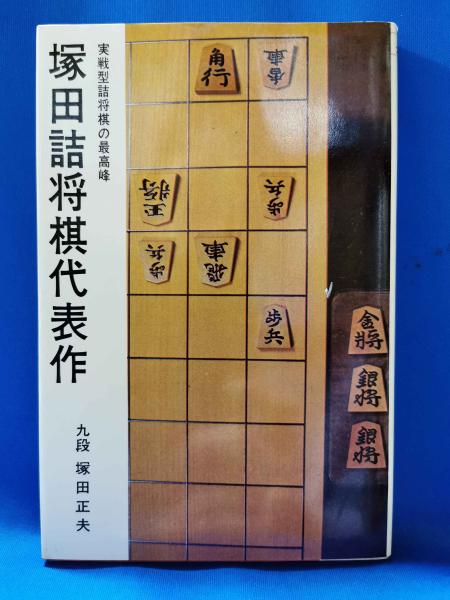 実戦型詰将棋の最高峰
塚田詰将棋代表作
九段 塚田正夫
角行
香車
王将
歩兵
歩兵
飛車
歩兵
金将
銀将
銀将